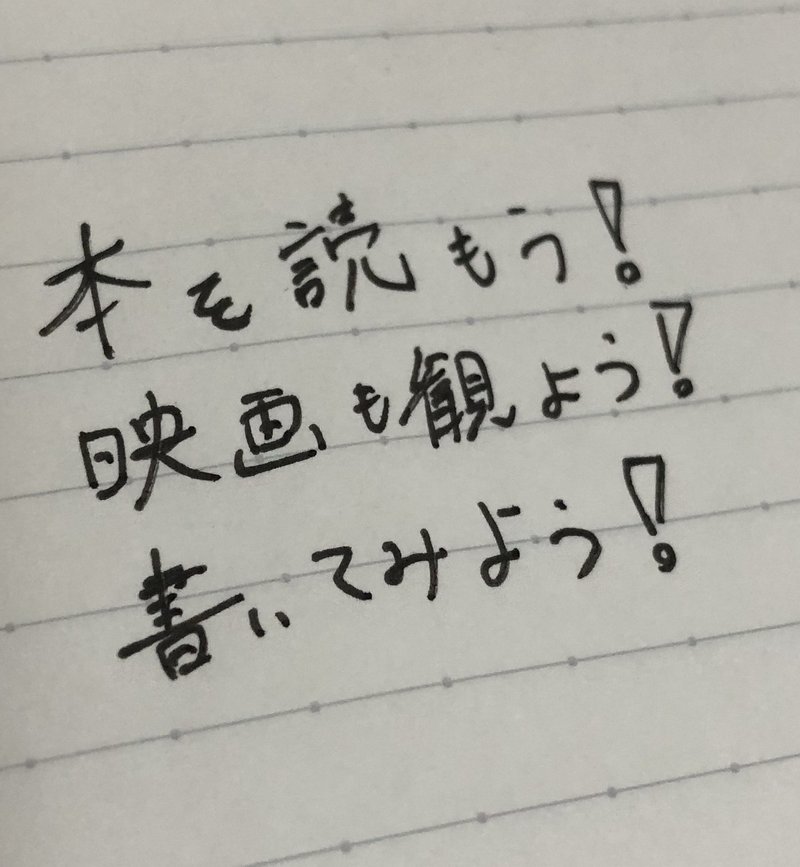 本を読もう!
映画も観よう!
書いてみよう!